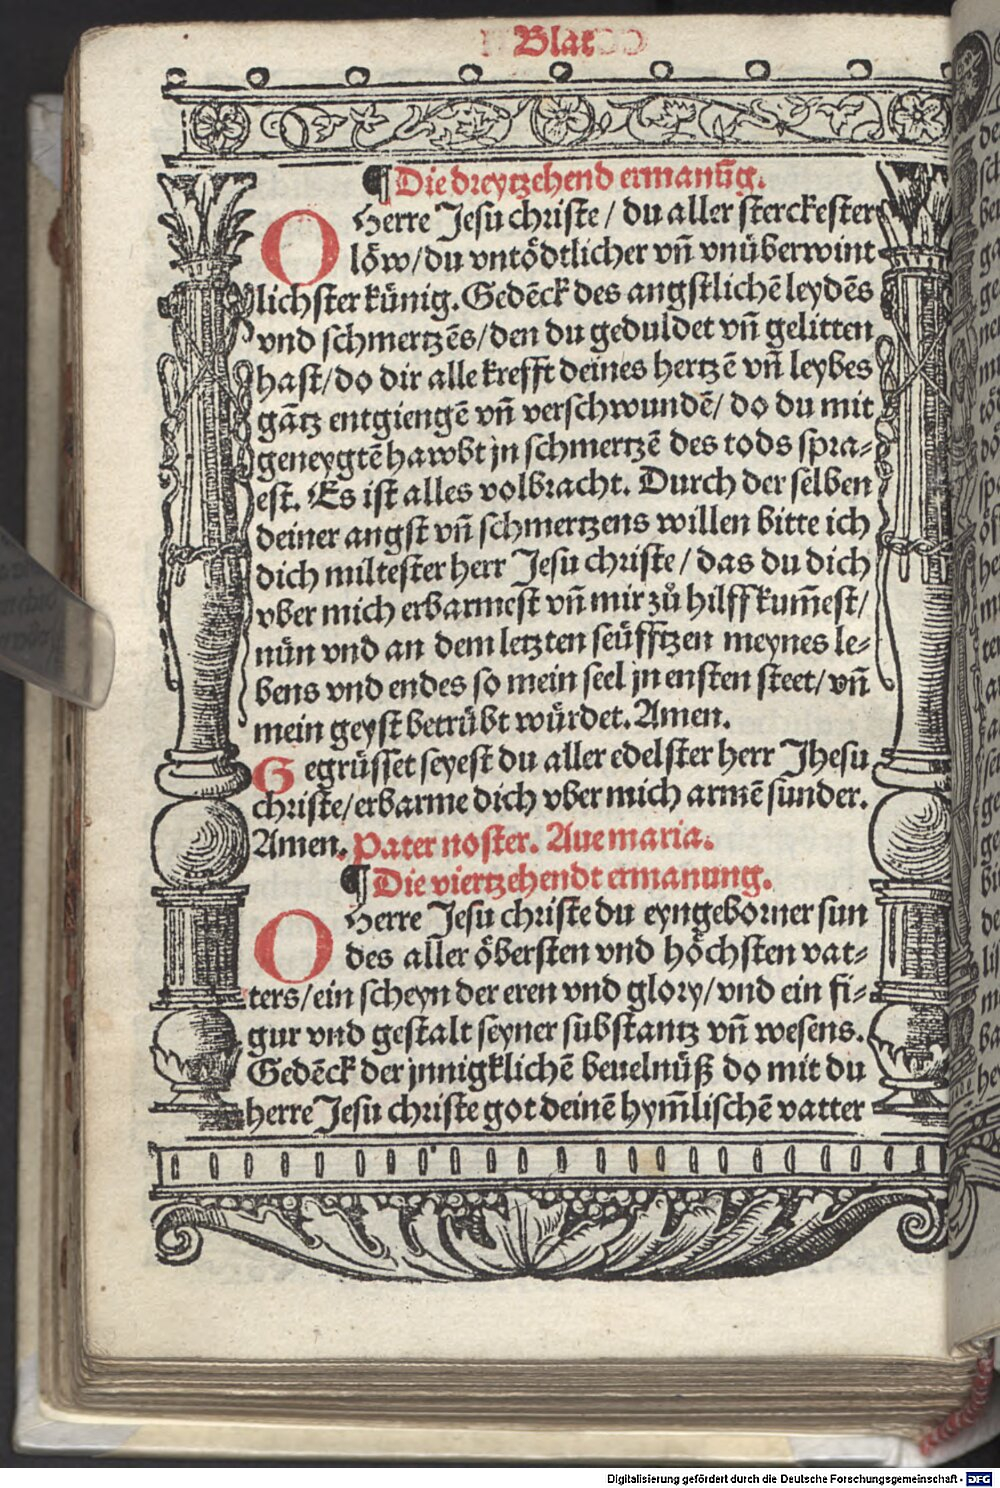 Blat
¶ Die dreytzehend ermanūg.
O Herre Jesu christe / du aller sterckester
löw/du vntödtlicher vn̄ vnüberwint
lichster künig. Gedēck des angstlichē leydēs
vnd schmertzēs/den du geduldet vn̄ gelitten
hast/do dir alle krefft deines hertzē vn̄ leybes
gātz entgiengē vn̄ verschwundē/ do du mit
geneygtē hawbt jn schmertzē des tods spra⸗
est. Es ist alles volbracht. Durch der selben
deiner angst vn̄ schmertzens willen bitte ich
dich miltester herr Jesu christe/ das du dich
vber mich erbarmest vn̄ mir zů hilff kum̄est/
nün vnd an dem letzten seüfftzen meynes le⸗
bens vnd endes so mein seel jn ensten steet/ vn̄
mein geyst betrübt würdet. Amen.
Gegrüsset seyest du aller edelster herr Jhesu
christe/erbarme dich vber mich armē sunder.
Amen. Pater noster. Aue maria.
¶ Die viertzehendt ermanung.
O Herre Jesu christe du eyngeborner sun
des aller öbersten vnd höchsten vat⸗
ters/ein scheyn der eren vnd glory/vnd ein fi⸗
gur vnd gestalt seyner substantz vn̄ wesens.
Gedēck der jnnigklichē beuelnüß do mit du
herre Jesu christe got deinē hym̄lischē vatter
Digitalisierung gefördert durch die Deutsche Forschungsgemeinschaft - DFG